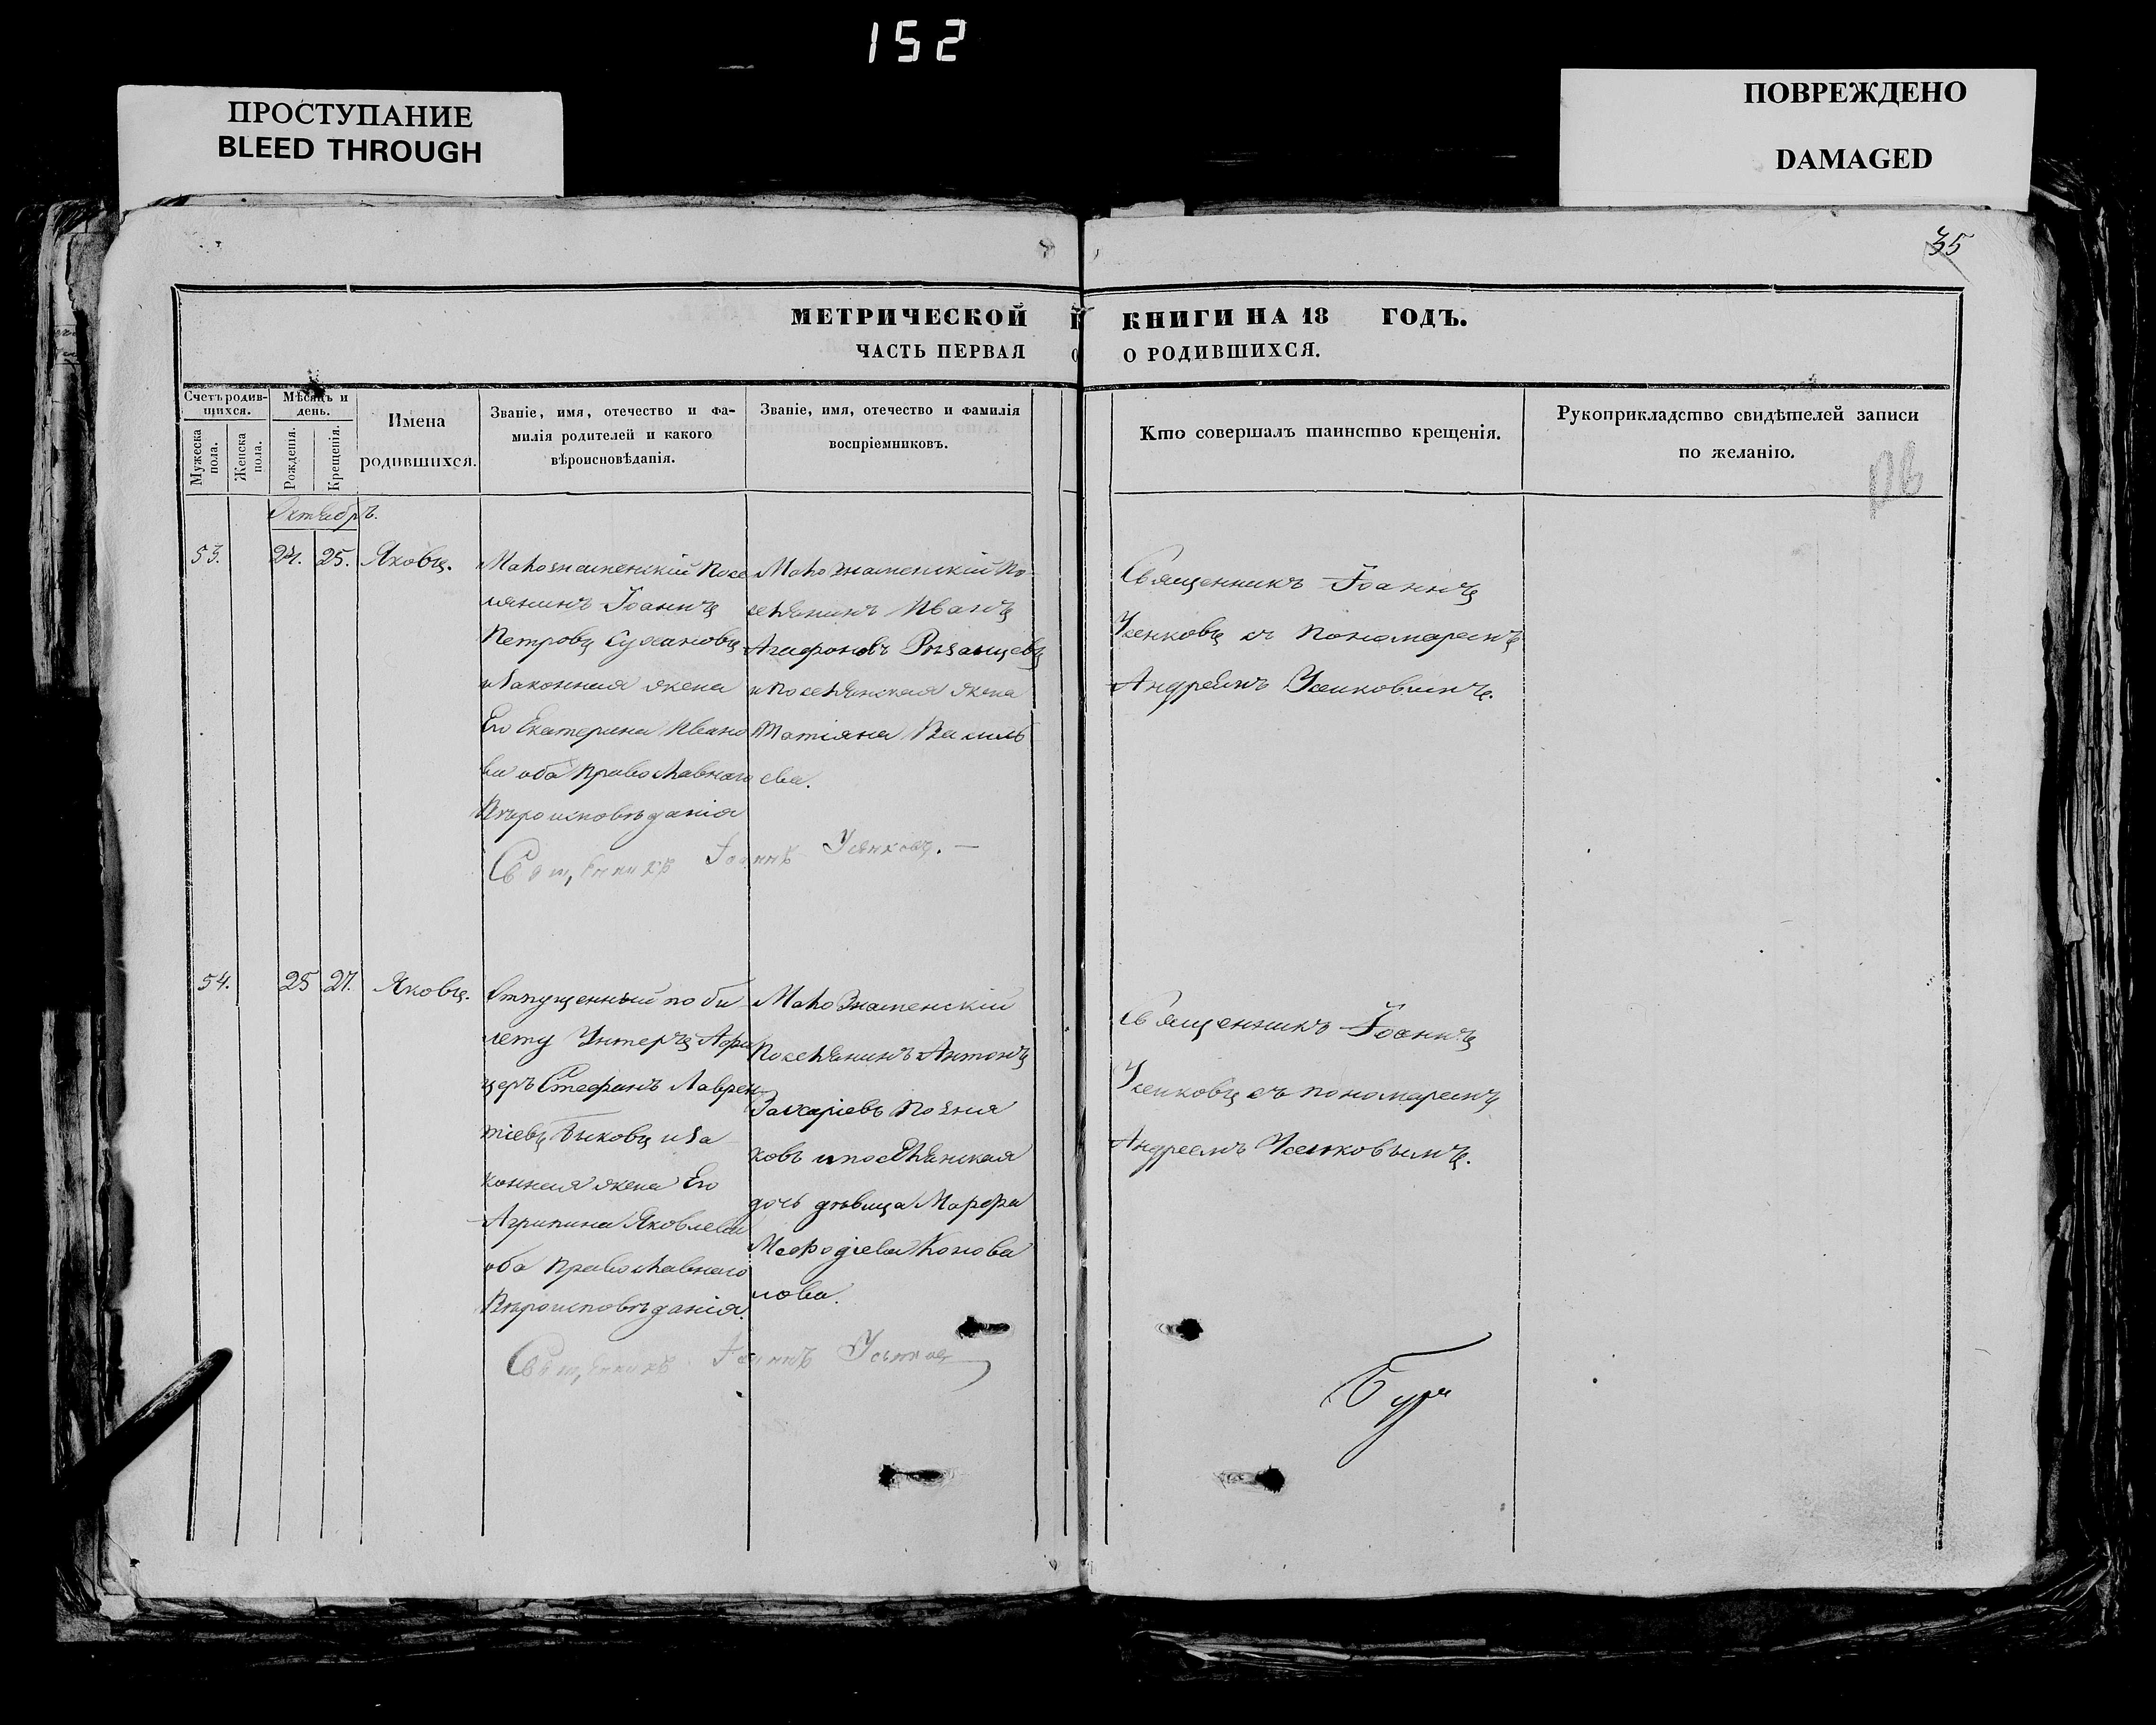 152
ПРОСТУПАНИЕ
BLEED THROUGH
ПОВРЕЖДЕНО
DAMAGED
35
МЕТРИЧЕСКОЙ КНИГИ НА 18 ГОДЪ.
ЧАСТЬ ПЕРВАЯ О РОДИВШИХСЯ.
Счетъ родив-
щихся.
Мужеска
пола.
Женска
пола.
Мѣсяцъ и
день.
Рожденія.
Крещенія.
Имена
родившихся.
Званіе, имя, отечество и фа-
милія родителей и какого
вѣроисповѣданія.
Званіе, имя, отечество и фамилія
воспріемниковъ.
Кто совершалъ таинство крещенія.
Рукоприкладство свидѣтелей записи
по желанію.
Октябрь.
53. 24. 25. Яковъ.
Малознаменскій Посе
лянинъ Іоаннъ
Петровъ Сухановъ
и Законная жена
Его Екатерина Ивано
ва оба православнаго
Вѣроисповѣданія
Малознаменскій По
селянинъ Иванъ
Агафоновъ Рязанцевъ
и поселянская жена
Татіяна Василь
ева.
Священникъ Іоаннъ Усенковъ.
Священникъ Іоаннъ
Усенковъ съ пономаремъ
Андреемъ Усенковымъ.
54. 25 27. Яковъ.
Отпущенный по би
лету Унтеръ Афи
церъ Стефанъ Лаврен
тіевъ Быковъ и За
конная жена Его
Агрипина Яковлева
оба православнаго
Вѣроисповѣданія.
МалоЗнаменскій
Поселянинъ Антонъ
Захаріевъ Позня
ковъ и поселянская
дочь дѣвица Марфа
Мефодіева Конова
лова.
Священникъ Іоаннъ Усенковъ
Священникъ Іоаннъ
Усенковъ съ пономаремъ
Андреемъ Усенковымъ.